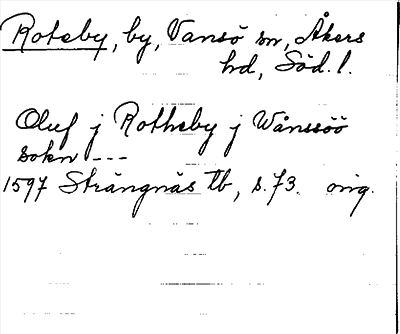 Rotsby, by, Vansö sn, Åkers
hd, Söd. l.
Oluf j Rothsby j Wånssöö
sokn ---
1597 Strängnäs tb, s. 73. orig.